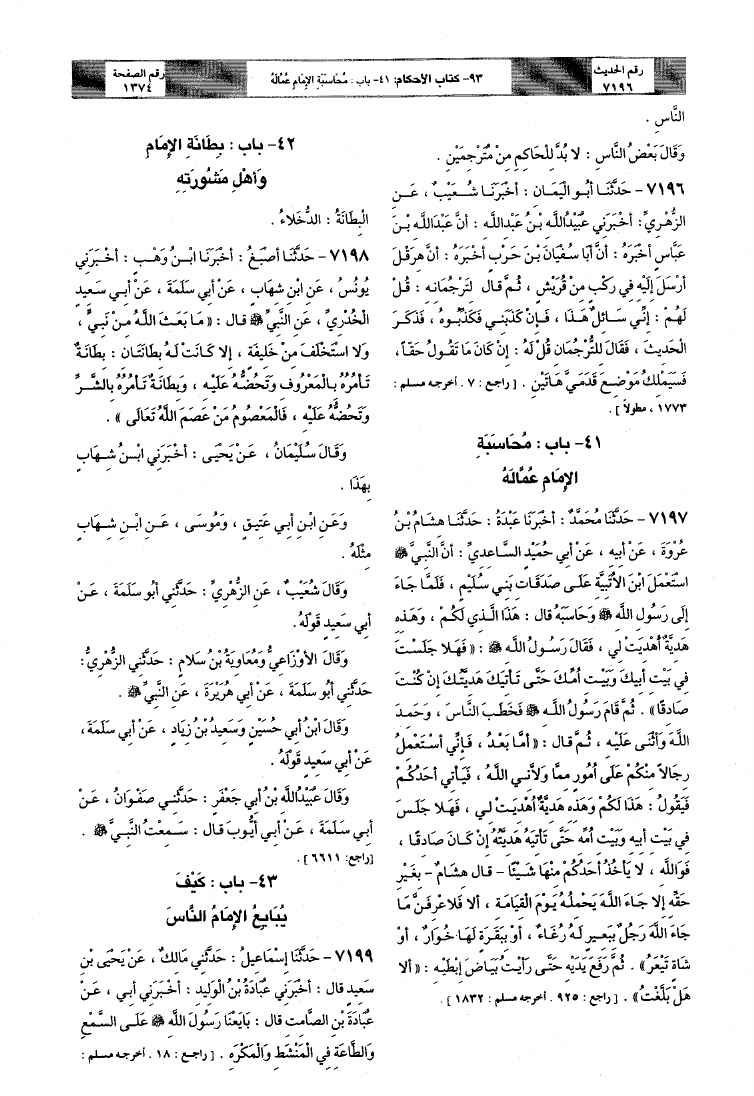 رقم الحديث
٧١٩٦
٩٣- كتاب الأحكام: ٤١- باب : مُحَاسَبَةِ الإِمَامِ عُمَّالَهُ
رقم الصفحة
١٣٧٤
النَّاسِ .
وَقَالَ بَعْضُ النَّاسِ : لا بُدَّ لِلْحَاكِمِ مِنْ مُتَرْجِمَيْنِ .
٧١٩٦- حَدَّثَنَا أَبُو الْيَمَانِ : أَخْبَرَنَا شُعَيْبٌ ، عَنِ
الزُّهْرِيِّ : أَخْبَرَنِي عُبَيْدُاللَّهِ بْنُ عَبْدِاللَّهِ : أَنَّ عَبْدَاللَّهِ بْنَ
عَبَّاسٍ أَخْبَرَهُ : أَنَّ أَبَا سُفْيَانَ بْنَ حَرْبٍ أَخْبَرَهُ : أَنَّ هِرَقْلَ
أَرْسَلَ إِلَيْهِ فِي رَكْبٍ مِنْ قُرَيْشٍ ، ثُمَّ قَالَ لِتَرْجُمَانِهِ : قُلْ
لَهُمْ : إِنِّي سَائِلٌ هَذَا ، فَإِنْ كَذَبَنِي فَكَذِّبُوهُ ، فَذَكَرَ
الْحَدِيثَ ، فَقَالَ لِلتَّرْجُمَانِ قُلْ لَهُ : إِنْ كَانَ مَا تَقُولُ حَقًّا ،
فَسَيَمْلِكُ مَوْضِعَ قَدَمَيَّ هَاتَيْنِ . [راجع : ٧ . أخرجه مسلم :
١٧٧٣ ، مطولاً] .
٤١- باب : مُحَاسَبَةِ
الإِمَامِ عُمَّالَهُ
٧١٩٧- حَدَّثَنَا مُحَمَّدٌ : أَخْبَرَنَا عَبْدَةُ : حَدَّثَنَا هِشَامُ بْنُ
عُرْوَةَ ، عَنْ أَبِيهِ ، عَنْ أَبِي حُمَيْدٍ السَّاعِدِيِّ : أَنَّ النَّبِيَّ ﷺ
اسْتَعْمَلَ ابْنَ الأُتْبِيَّةِ عَلَى صَدَقَاتِ بَنِي سُلَيْمٍ ، فَلَمَّا جَاءَ
إِلَى رَسُولِ اللَّهِ ﷺ وَحَاسَبَهُ قَالَ : هَذَا الَّذِي لَكُمْ ، وَهَذِهِ
هَدِيَّةٌ أُهْدِيَتْ لِي ، فَقَالَ رَسُولُ اللَّهِ ﷺ : «فَهَلا جَلَسْتَ
فِي بَيْتِ أَبِيكَ وَبَيْتِ أُمِّكَ حَتَّى تَأْتِيَكَ هَدِيَّتُكَ إِنْ كُنْتَ
صَادِقًا» . ثُمَّ قَامَ رَسُولُ اللَّهِ ﷺ فَخَطَبَ النَّاسَ ، وَحَمِدَ
اللَّهَ وَأَثْنَى عَلَيْهِ ، ثُمَّ قَالَ : «أَمَّا بَعْدُ ، فَإِنِّي أَسْتَعْمِلُ
رِجَالاً مِنْكُمْ عَلَى أُمُورٍ مِمَّا وَلاَّنِي اللَّهُ ، فَيَأْتِي أَحَدُكُمْ
فَيَقُولُ : هَذَا لَكُمْ وَهَذِهِ هَدِيَّةٌ أُهْدِيَتْ لِي ، فَهَلا جَلَسَ
فِي بَيْتِ أَبِيهِ وَبَيْتِ أُمِّهِ حَتَّى تَأْتِيَهُ هَدِيَّتُهُ إِنْ كَانَ صَادِقًا ،
فَوَاللَّهِ ، لا يَأْخُذُ أَحَدُكُمْ مِنْهَا شَيْئًا - قال هِشَامٌ - بِغَيْرِ
حَقِّهِ إِلا جَاءَ اللَّهَ يَحْمِلُهُ يَوْمَ الْقِيَامَةِ ، أَلا فَلأَعْرِفَنَّ مَا
جَاءَ اللَّهَ رَجُلٌ بِبَعِيرٍ لَهُ رُغَاءٌ ، أَوْ بِبَقَرَةٍ لَهَا خُوَارٌ ، أَوْ
شَاةٍ تَيْعَرُ» . ثُمَّ رَفَعَ يَدَيْهِ حَتَّى رَأَيْتُ بَيَاضَ إِبْطَيْهِ : «أَلا
هَلْ بَلَّغْتُ» . [راجع : ٩٢٥ . أخرجه مسلم : ١٨٣٢] .
٤٢- باب : بِطَانَةِ الإِمَامِ
وَأَهْلِ مَشُورَتِهِ
الْبِطَانَةُ : الدُّخَلاءُ .
٧١٩٨- حَدَّثَنَا أَصْبَغُ : أَخْبَرَنَا ابْنُ وَهْبٍ : أَخْبَرَنِي
يُونُسُ ، عَنِ ابْنِ شِهَابٍ ، عَنْ أَبِي سَلَمَةَ ، عَنْ أَبِي سَعِيدٍ
الْخُدْرِيِّ ، عَنِ النَّبِيِّ ﷺ قال : «مَا بَعَثَ اللَّهُ مِنْ نَبِيٍّ ،
وَلا اسْتَخْلَفَ مِنْ خَلِيفَةٍ ، إِلا كَانَتْ لَهُ بِطَانَتَانِ : بِطَانَةٌ
تَأْمُرُهُ بِالْمَعْرُوفِ وَتَحُضُّهُ عَلَيْهِ ، وَبِطَانَةٌ تَأْمُرُهُ بِالشَّرِّ
وَتَحُضُّهُ عَلَيْهِ ، فَالْمَعْصُومُ مَنْ عَصَمَ اللَّهُ تَعَالَى» .
وَقَالَ سُلَيْمَانُ ، عَنْ يَحْيَى : أَخْبَرَنِي ابْنُ شِهَابٍ
بِهَذَا .
وَعَنِ ابْنِ أَبِي عَتِيقٍ ، وَمُوسَى ، عَنِ ابْنِ شِهَابٍ
مِثْلَهُ .
وَقَالَ شُعَيْبٌ ، عَنِ الزُّهْرِيِّ : حَدَّثَنِي أَبُو سَلَمَةَ ، عَنْ
أَبِي سَعِيدٍ قَوْلَهُ .
وَقَالَ الأَوْزَاعِيُّ وَمُعَاوِيَةُ بْنُ سَلامٍ : حَدَّثَنِي الزُّهْرِيُّ :
حَدَّثَنِي أَبُو سَلَمَةَ ، عَنْ أَبِي هُرَيْرَةَ ، عَنِ النَّبِيِّ ﷺ .
وَقَالَ ابْنُ أَبِي حُسَيْنٍ وَسَعِيدُ بْنُ زِيَادٍ ، عَنْ أَبِي سَلَمَةَ ،
عَنْ أَبِي سَعِيدٍ قَوْلَهُ .
وَقَالَ عُبَيْدُاللَّهِ بْنُ أَبِي جَعْفَرٍ : حَدَّثَنِي صَفْوَانُ ، عَنْ
أَبِي سَلَمَةَ ، عَنْ أَبِي أَيُّوبَ قال : سَمِعْتُ النَّبِيَّ ﷺ .
[راجع: ٦٦١١] .
٤٣- باب : كَيْفَ
يُبَايِعُ الإِمَامُ النَّاسَ
٧١٩٩- حَدَّثَنَا إِسْمَاعِيلُ : حَدَّثَنِي مَالِكٌ ، عَنْ يَحْيَى بْنِ
سَعِيدٍ قال : أَخْبَرَنِي عُبَادَةُ بْنُ الْوَلِيدِ : أَخْبَرَنِي أَبِي ، عَنْ
عُبَادَةَ بْنِ الصَّامِتِ قال : بَايَعْنَا رَسُولَ اللَّهِ ﷺ عَلَى السَّمْعِ
وَالطَّاعَةِ فِي الْمَنْشَطِ وَالْمَكْرَهِ . [راجع : ١٨ . أخرجه مسلم :